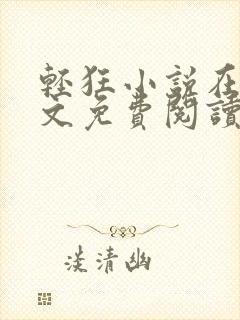 輕狂小說在
文免費閱讀
淡清幽